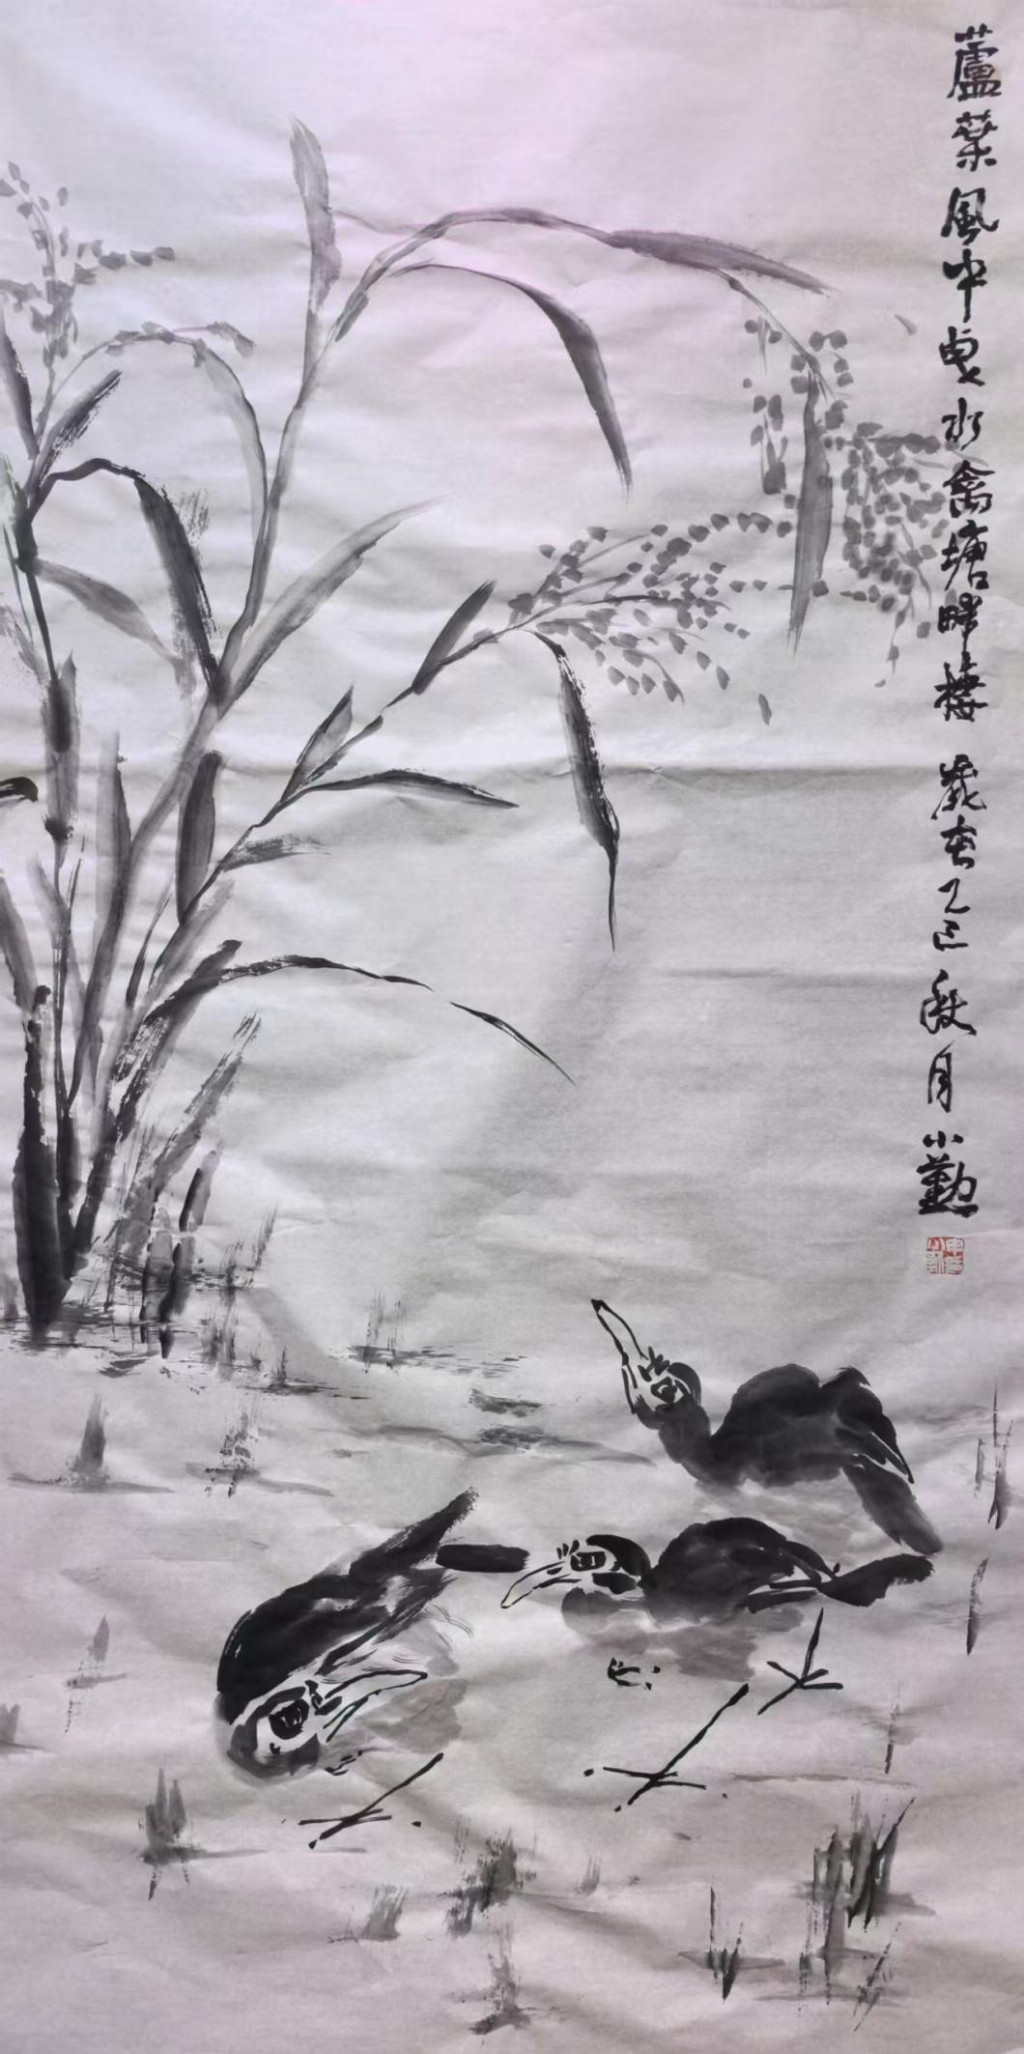 蘆葉風中曳水禽塘畔棲 歲在乙巳秋月小勤